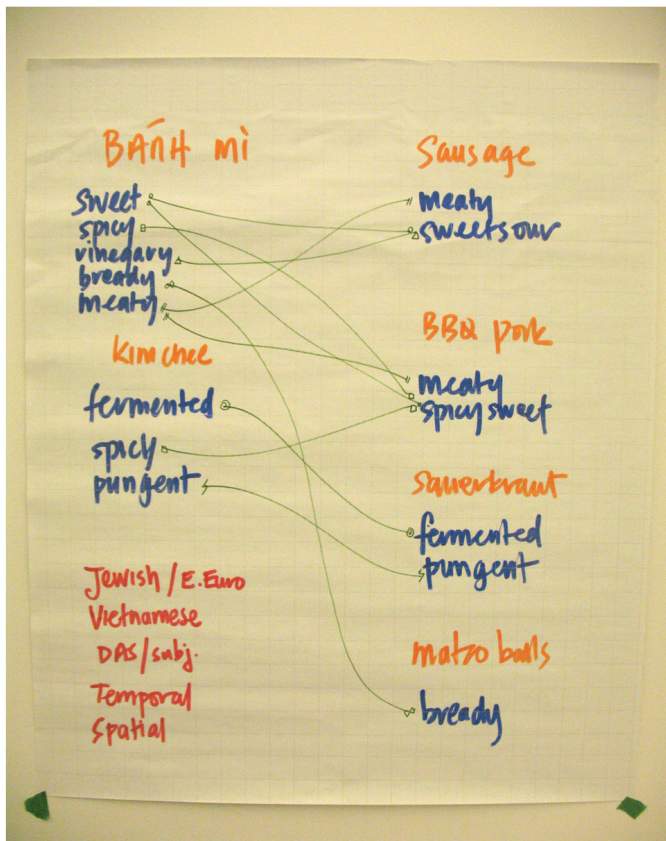 BÁNH mì
sweet
spicy
vinegary
bready
meaty
kimchee
fermented
spicy
pungent
Jewish / E. Euro
Vietnamese
DAS/subj.
Temporal
Spatial
Sausage
meaty
sweetsour
BBQ pork
meaty
spicy sweet
Sauerkraut
fermented
pungent
matzo balls
bready